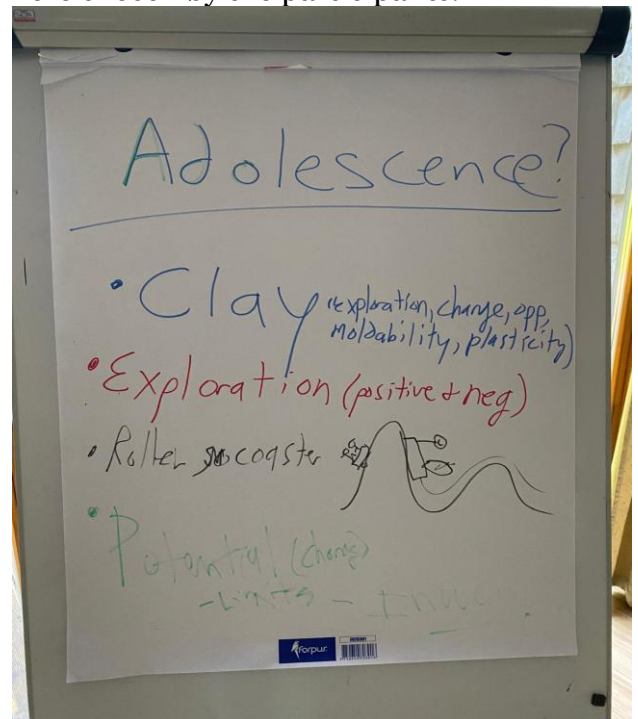 Adolescence?
• Clay (exploration, change, opp,
moldability, plasticity)
• Exploration (positive + neg)
• Roller coaster
• Potential (change)
- Limits -
Forpus